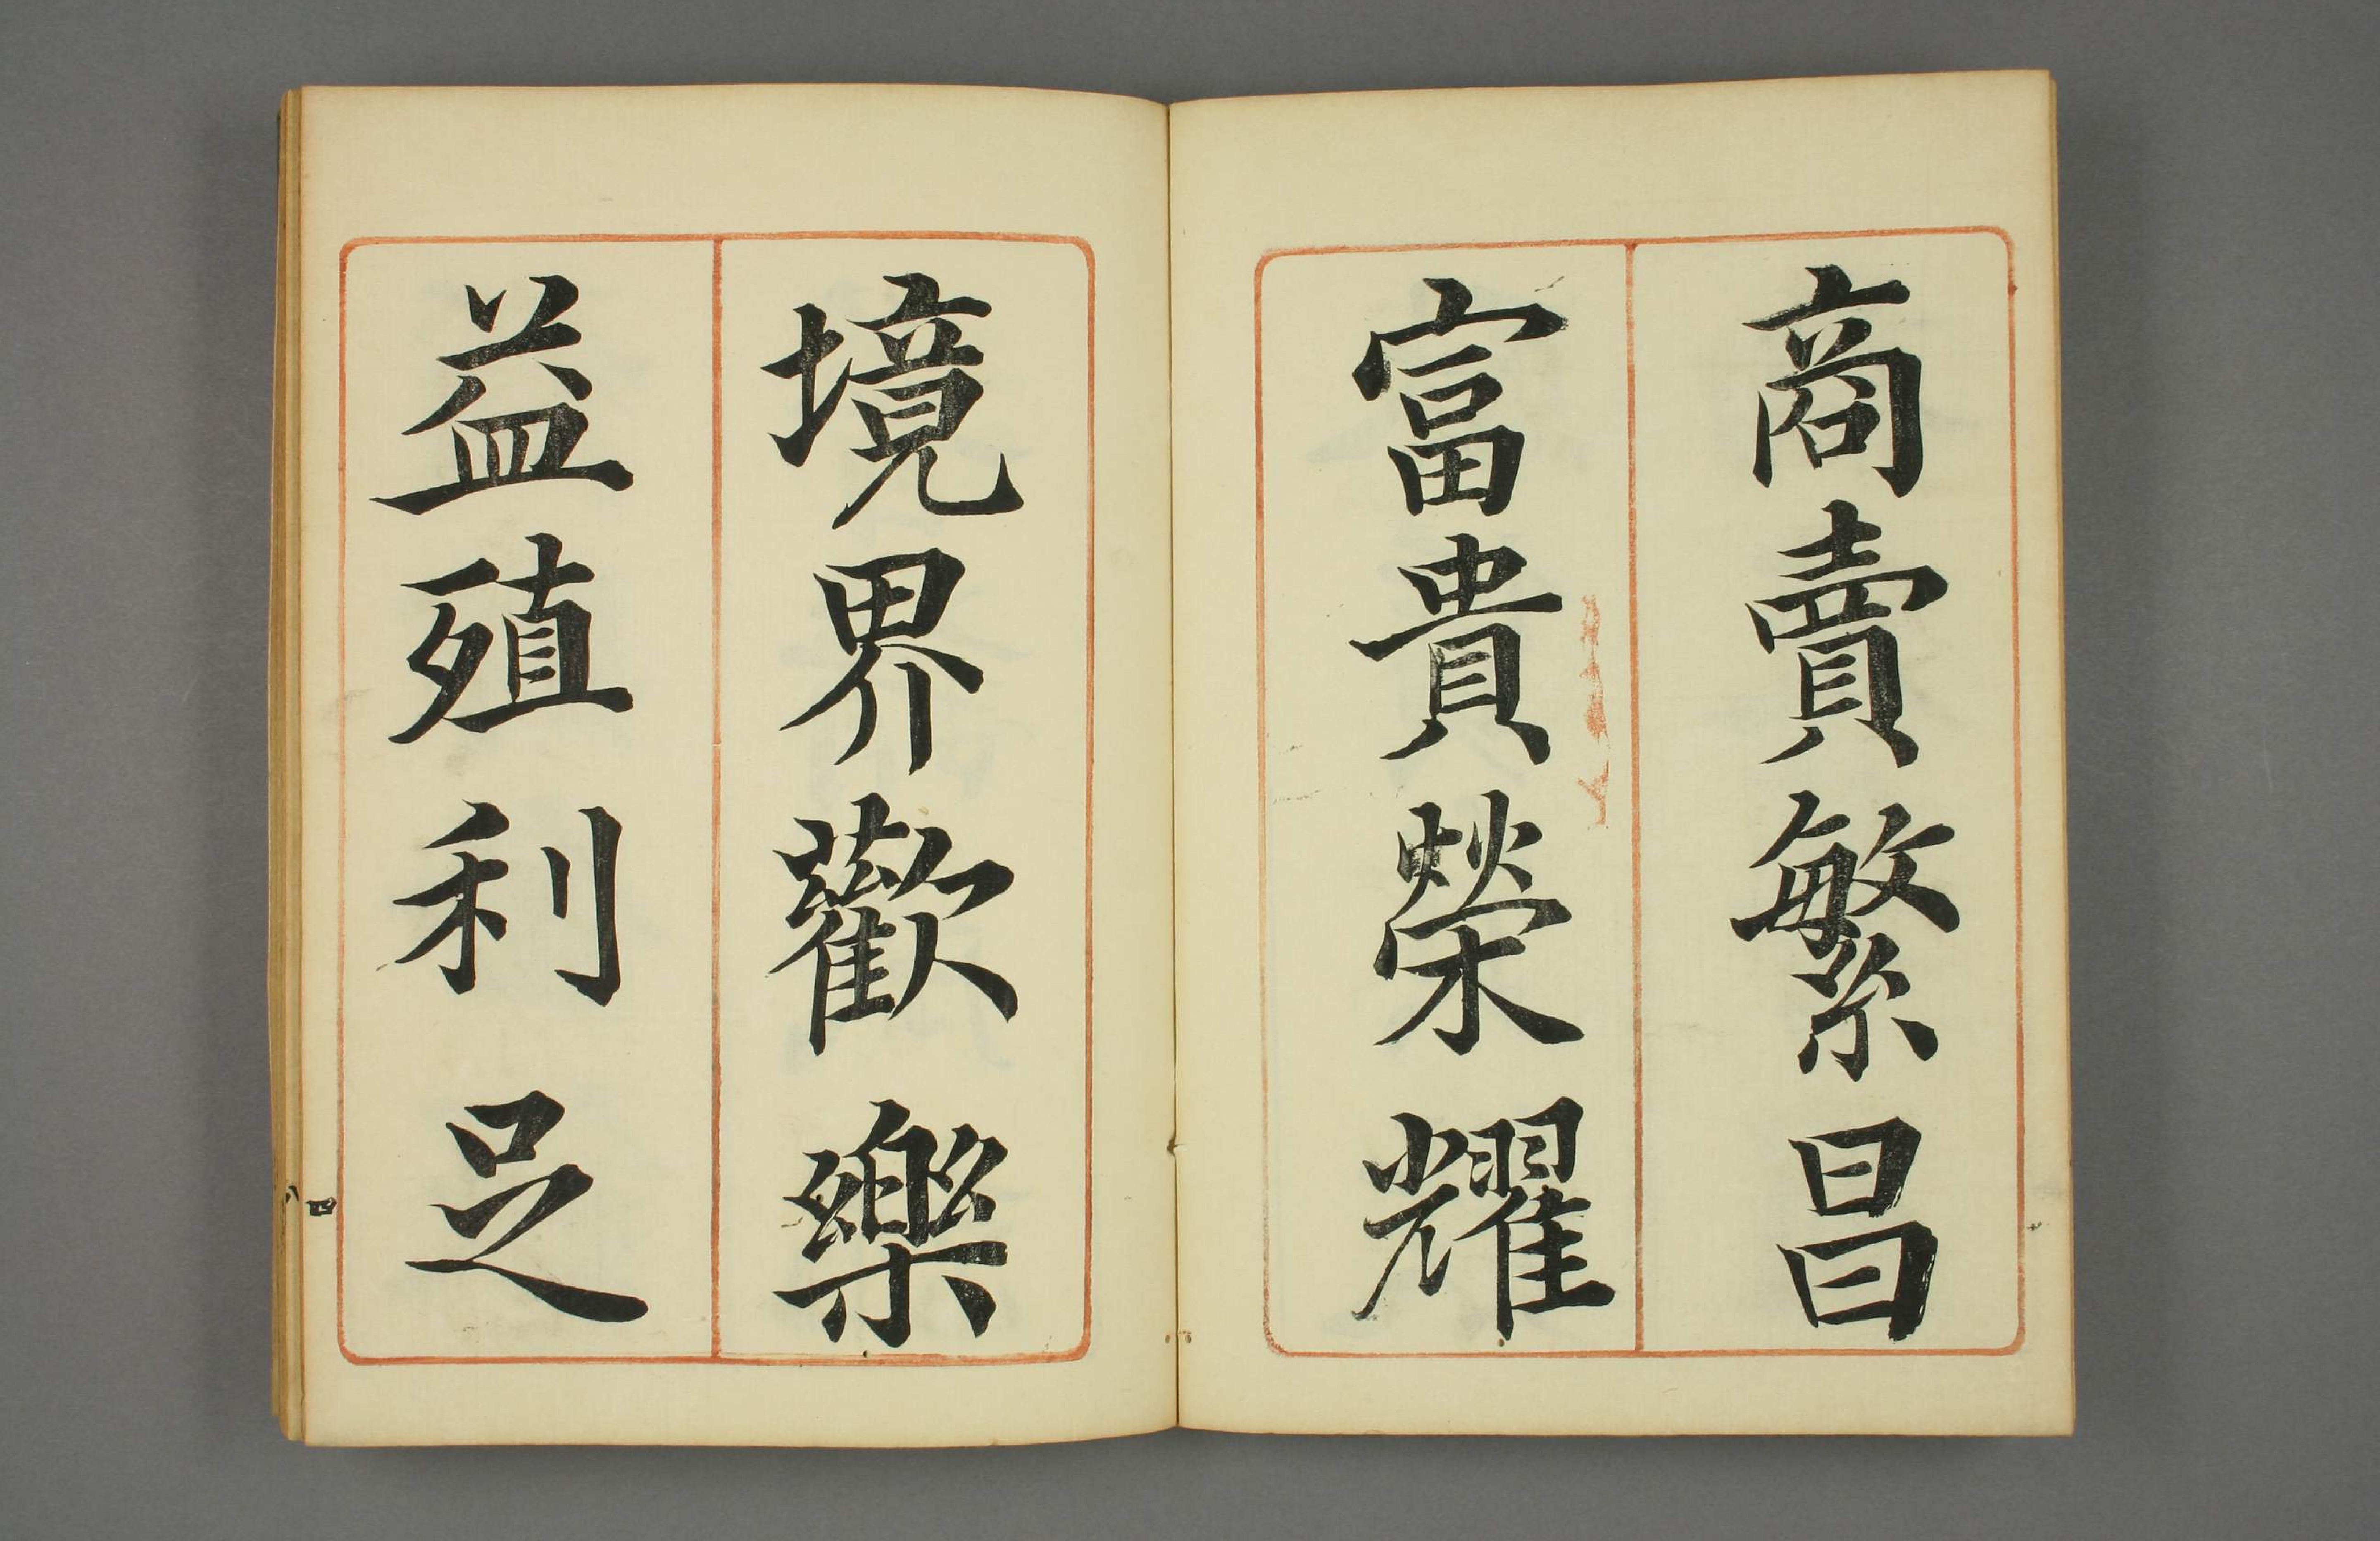 商賣繁昌
富貴榮耀
境界歡樂
益殖利足
四